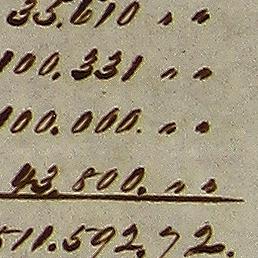 35.610 " "
100.331 " "
100.000. " "
43.800. " "
511.592.72.